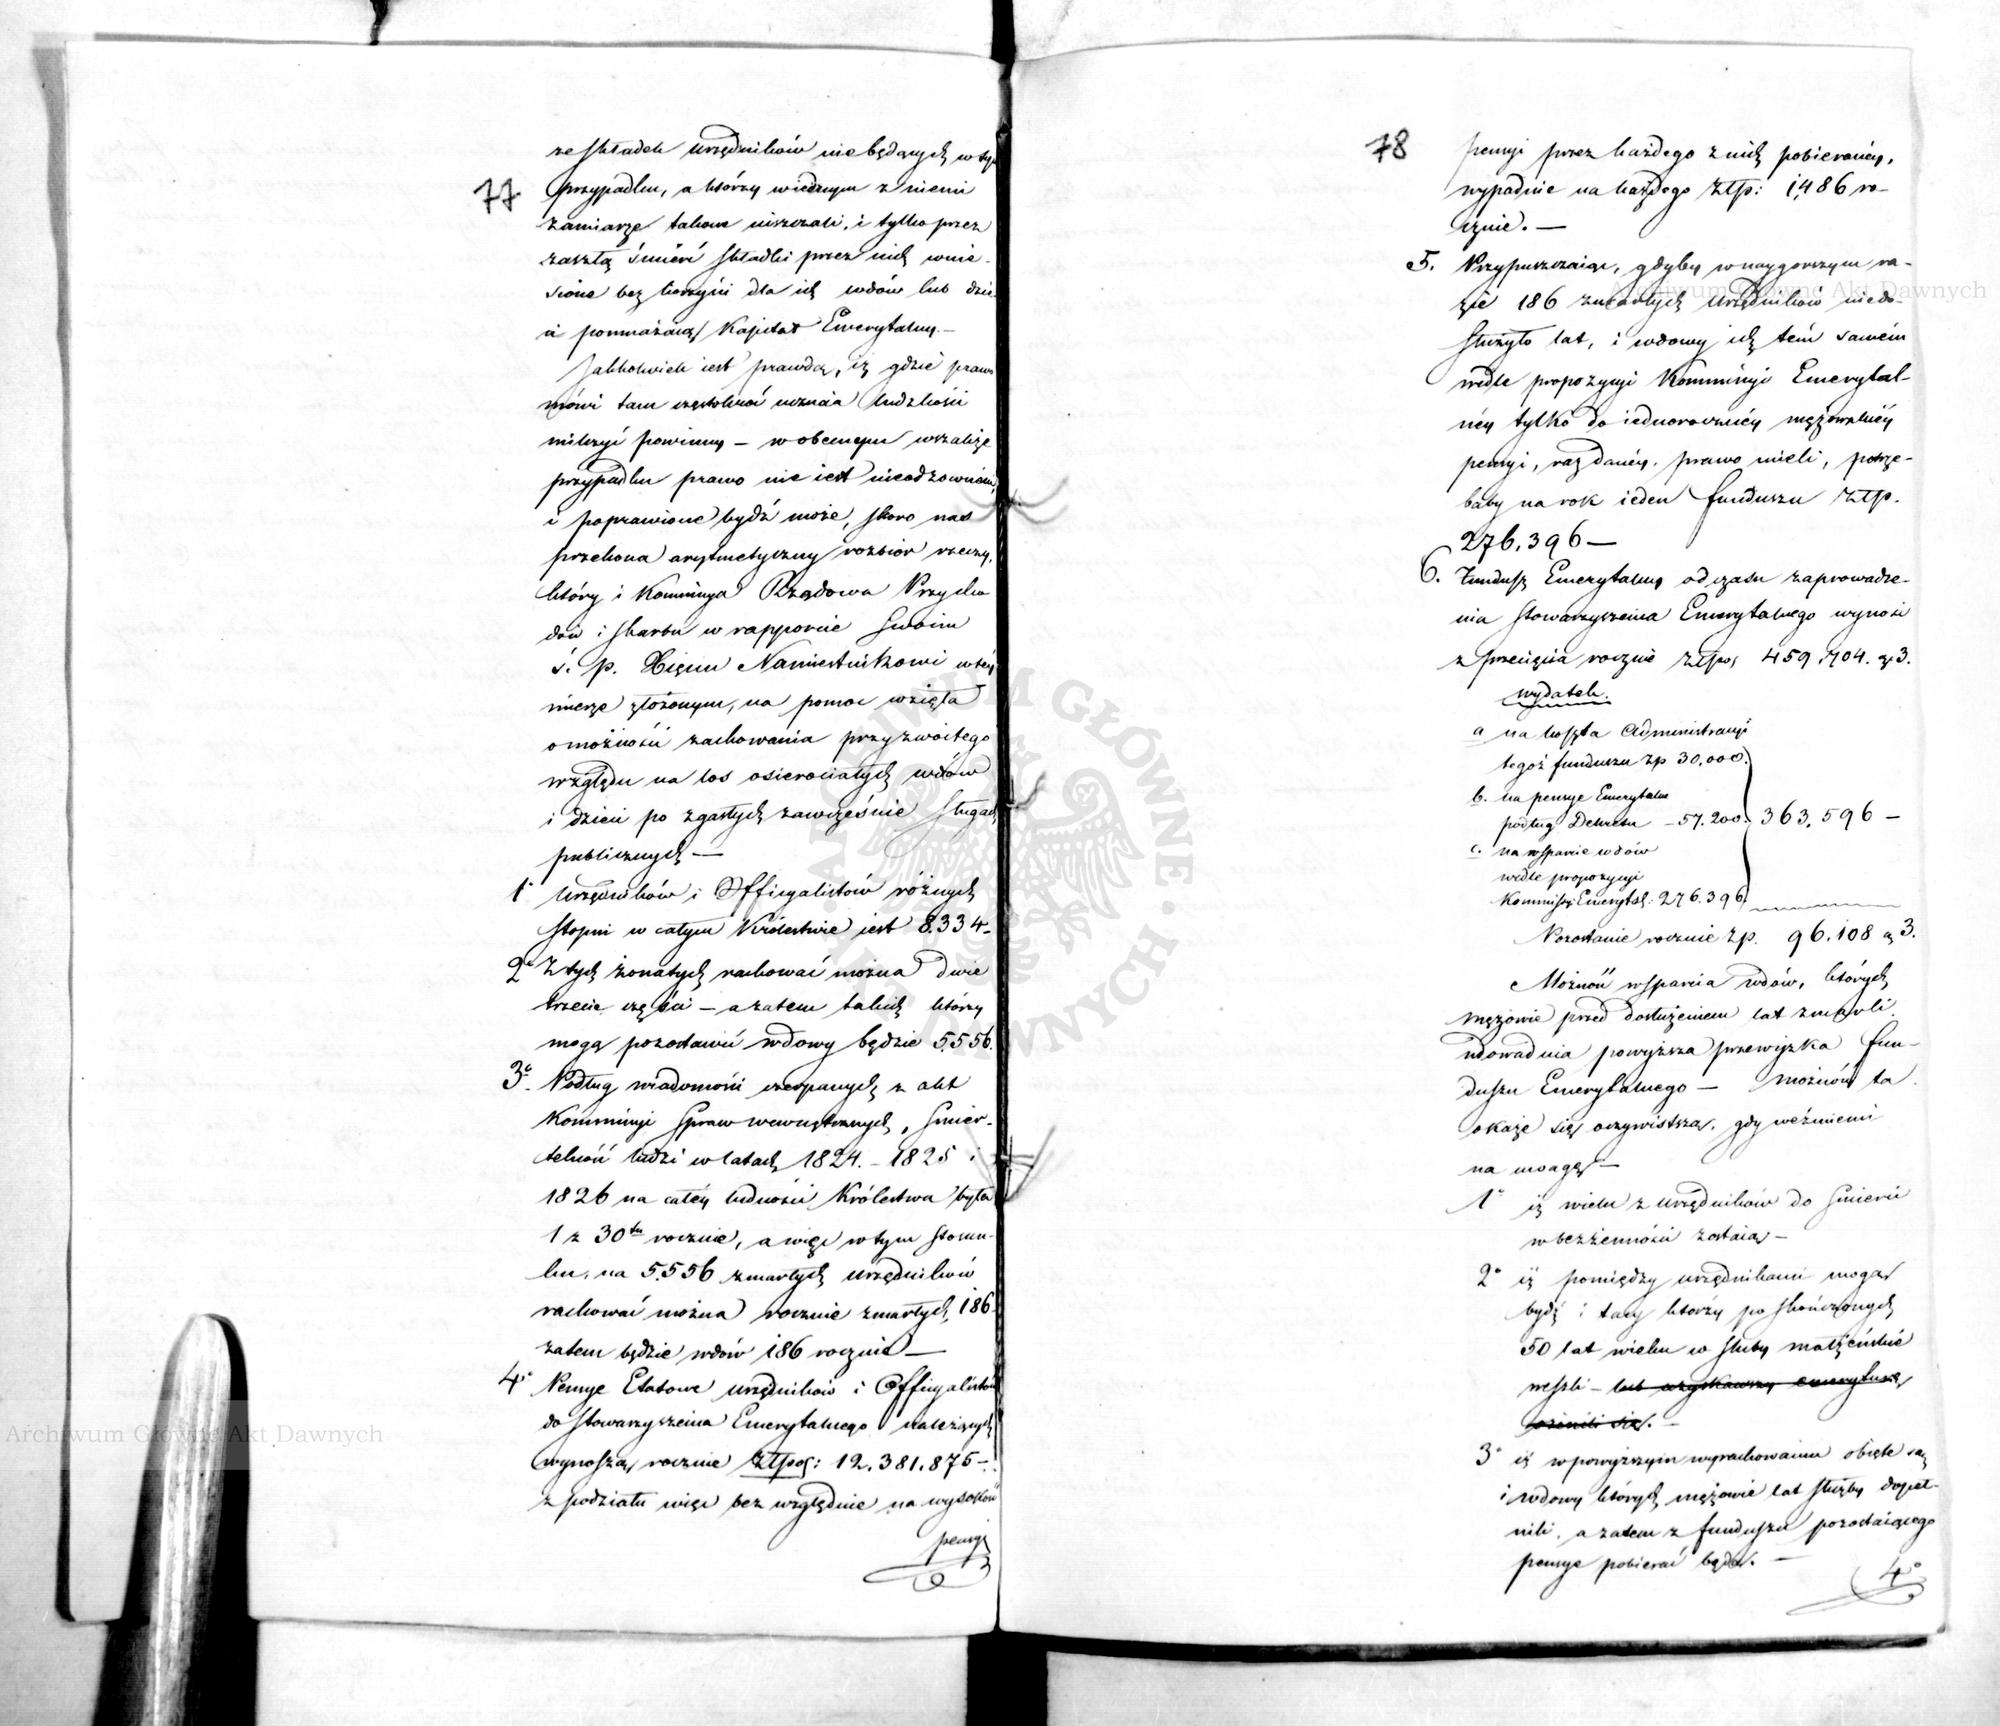 77
ze składek urzędników nie będących w tym
przypadku, a którzy w iednym z niemi
zamiarze takowe uiszczali, i tylko przez
zaszłą śmierć składki przez nich wnie-
sione bez korzyści dla ich wdów lub dzie-
ci pomnażaią kapitał Emerytalny. —
Jakkolwiek iest prawdą, iż gdzie prawo
mówi tam częstokroć uczucia ludzkości
milczyć powinny — w obecnym wszakże
przypadku prawo nie iest nieodzownem,
i poprawione bydź może, skoro nas
przekona arytmetyczny rozbiór rzeczy,
który i Kommissya Rządowa Przycho-
dów i Skarbu w rapporcie swoim
ś. p. Xięciu Namiestnikowi w tey
mierze złożonym, na pomoc wzięła
o możności zachowania przyzwoitego
względu na los osierociałych wdów
i dzieci po zgasłych zawcześnie sługach
publicznych —
1° Urzędników i Officyalistów różnych
stopni w całym Królestwie iest 8.334 —
2° Z tych żonatych rachować można dwie
trzecie części — a zatem takich którzy
mogą pozostawić wdowy będzie 5.556.
3° Podług wiadomości czerpanych z akt
Kommissyi Spraw wewnętrznych, śmier-
telność ludzi w latach 1824. – 1825 i
1826 na całéy ludności Królestwa była
1 z 30tu rocznie, a więc w tym stosun-
ku, na 5.556 zmarłych urzędników
rachować można rocznie zmarłych 186
zatem będzie wdów 186 rocznie —
4° Pensye Etatowe urzędników i Officyalistów
do Stowarzyszenia Emerytalnego należących
wynoszą rocznie złpoś: 12.381.875 —
z podziału więc bez względnie na wysokość
pensyi
78
pensyi przez każdego z nich pobieranéy,
wypadnie na każdego złp: 1,486 ro-
cznie. —
5. Przypuszczaiąc, gdyby w naygorszym ra-
zie 186 zmarłych Urzędników niedo-
służyło lat, i wdowy ich tém samém
wedle propozycyi Kommissyi Emerytal-
néy tylko do iednorocznéy mężowskiéy
pensyi, raz danéy, prawo mieli, potrze-
baby na rok ieden funduszu złp.
276.396 —
6. Fundusz Emerytalny od czasu zaprowadze-
nia Stowarzyszenia Emerytalnego wynosi
z przecięcia rocznie złpoś 459.704. gr 3.
wydatek.
a na koszta Administracyi
tegoż funduszu zp 30,000.
b. na pensye Emerytalne
podług Dekretu — 57.200. 363.596 —
c. na wsparcie wdów
wedle propozycyi
Kommissyi Emerytal: 276.396.
Pozostanie rocznie Zp. 96.108 g 3.
Możność wsparcia wdów, których
mężowie przed dosłużeniem lat zmarli,
udowadnia powyższa przewyżka fun-
duszu Emerytalnego — możność ta
okaże się oczywistszą, gdy weźmiemi
na uwagę —
1° iż wielu z urzędników do śmierci
w bezżenności zostaią —
2° iż pomiędzy urzędnikami mogą
bydź i tacy którzy po skończonych
50 lat wieku w śluby małżeńskie
weszli — lub uzyskawszy emeryturę
ożenili się. —
3° iż w powyższym wyrachowaniu obięte są
i wdowy których mężowie lat służby dopeł-
nili, a zatem z funduszu pozostaiącego
pensye pobierać będą. —
4°
Archiwum Główne Akt Dawnych
Archiwum Główne Akt Dawnych
ARCHIWUM GŁÓWNE AKT DAWNYCH